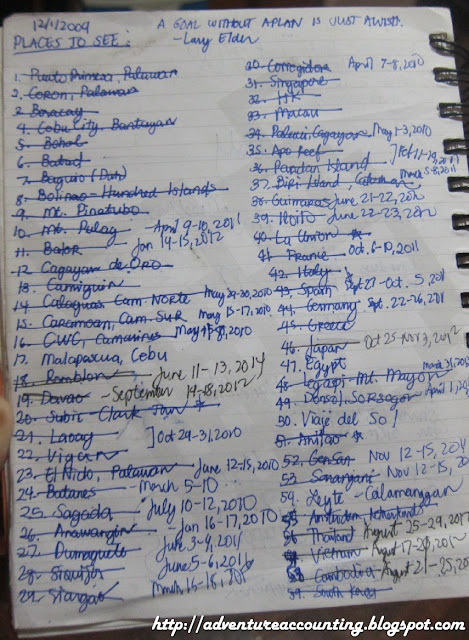 12/1/2009
A GOAL WITHOUT A PLAN IS JUST A WISH.
PLACES TO SEE:
-Lary Elder
1. Puerto Princesa, Palawan
2. CORON, Palawan
3. Boracay
4. Cebu City, Bantayan
5. Bohol
6. Batad
7. Baguio (Dad)
8. Bolinao-Hundred Islands
9. Mt. Pinatubo
10. Mt. Pulag - April 9-10, 2011
11. Baler - Jan 14-15, 2012
12. Cagayan de Oro
13. Camiguin
14. Calaguas Cam Norte May 29-30, 2010
15. Caramoan, Cam Sur May 15-17, 2010
16. CWC, Camarines May 2010
17. Malapascua, Cebu
18. Romblon - June 11-13, 2014
19. Davao - September 14-18, 2012
20. Subic-Clark
21. Laoag
22. Vigan
] Oct 29-31, 2010
23. El Nido, Palawan June 12-15, 2010
24. Batanes - March 5-10
25. Sagada July 10-12, 2010
26. Anawangin Jan 16-17, 2010
27. Dumaguete June 3-4, 2011
28. Siquijor June 5-6, 2011
29. Siargao March 16-18,
30. Corregidor April 7-8, 2010
31. Singapore
32. HK
33. Macau
34. Palaui, Cagayan May 1-3, 2010
35. Apo Reef
36. Pandan Island
37. Biri Island,
38. Guimaras June 21-22, 20
39. Iloilo June 22-23, 20
40. La Union
41. France Oct. 6-10, 2011
42. Italy
43. Spain Sept 27-Oct. 5, 201
44. Germany Sept. 22-26, 201
45. Greece
46. Japan Oct 25-Nov 3, 2012
47. Egypt
48. Legaspi-Mt. Mayon
49. Donsol, SORSOGON April 1,
50. Viaje del Sol
51. Anilao
52. GenSan Nov 12-15, 2011
53. Sarangani Nov 12-15, 20
54. Leyte-Calamanggan
55. Amsterdam Netherlands
56. Thailand August 25-29, 20
57. Vietnam August 17-20, 2012
58. Cambodia August 21-25, 20
59. South Korea
http://adventureaccounting.blogspot.com